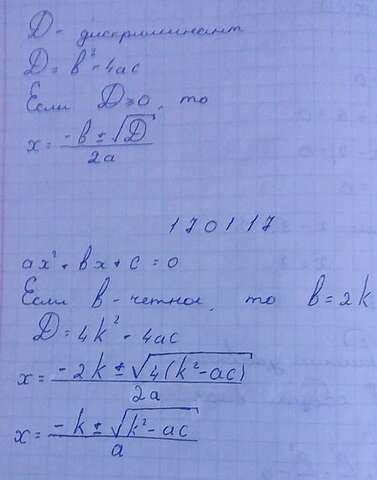 D - дискриминант
D = b² - 4ac
Если D≥0, то
x = (-b ± √D) / 2a
170117
ax² + bx + c = 0
Если b - четное, то b = 2k
D = 4k² - 4ac
x = (-2k ± √(4(k² - ac))) / 2a
x = (-k ± √(k² - ac)) / a